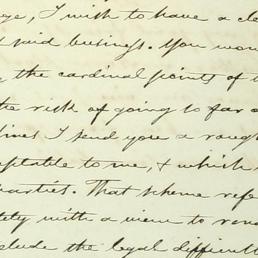 ge, I wish to have a cle
said business. You wou
the cardinal points of
the risk of going to far a
lines I send you a roug
ptable to me, & which
parties. That scheme refe
tity with a view to rend
clude the legal difficult